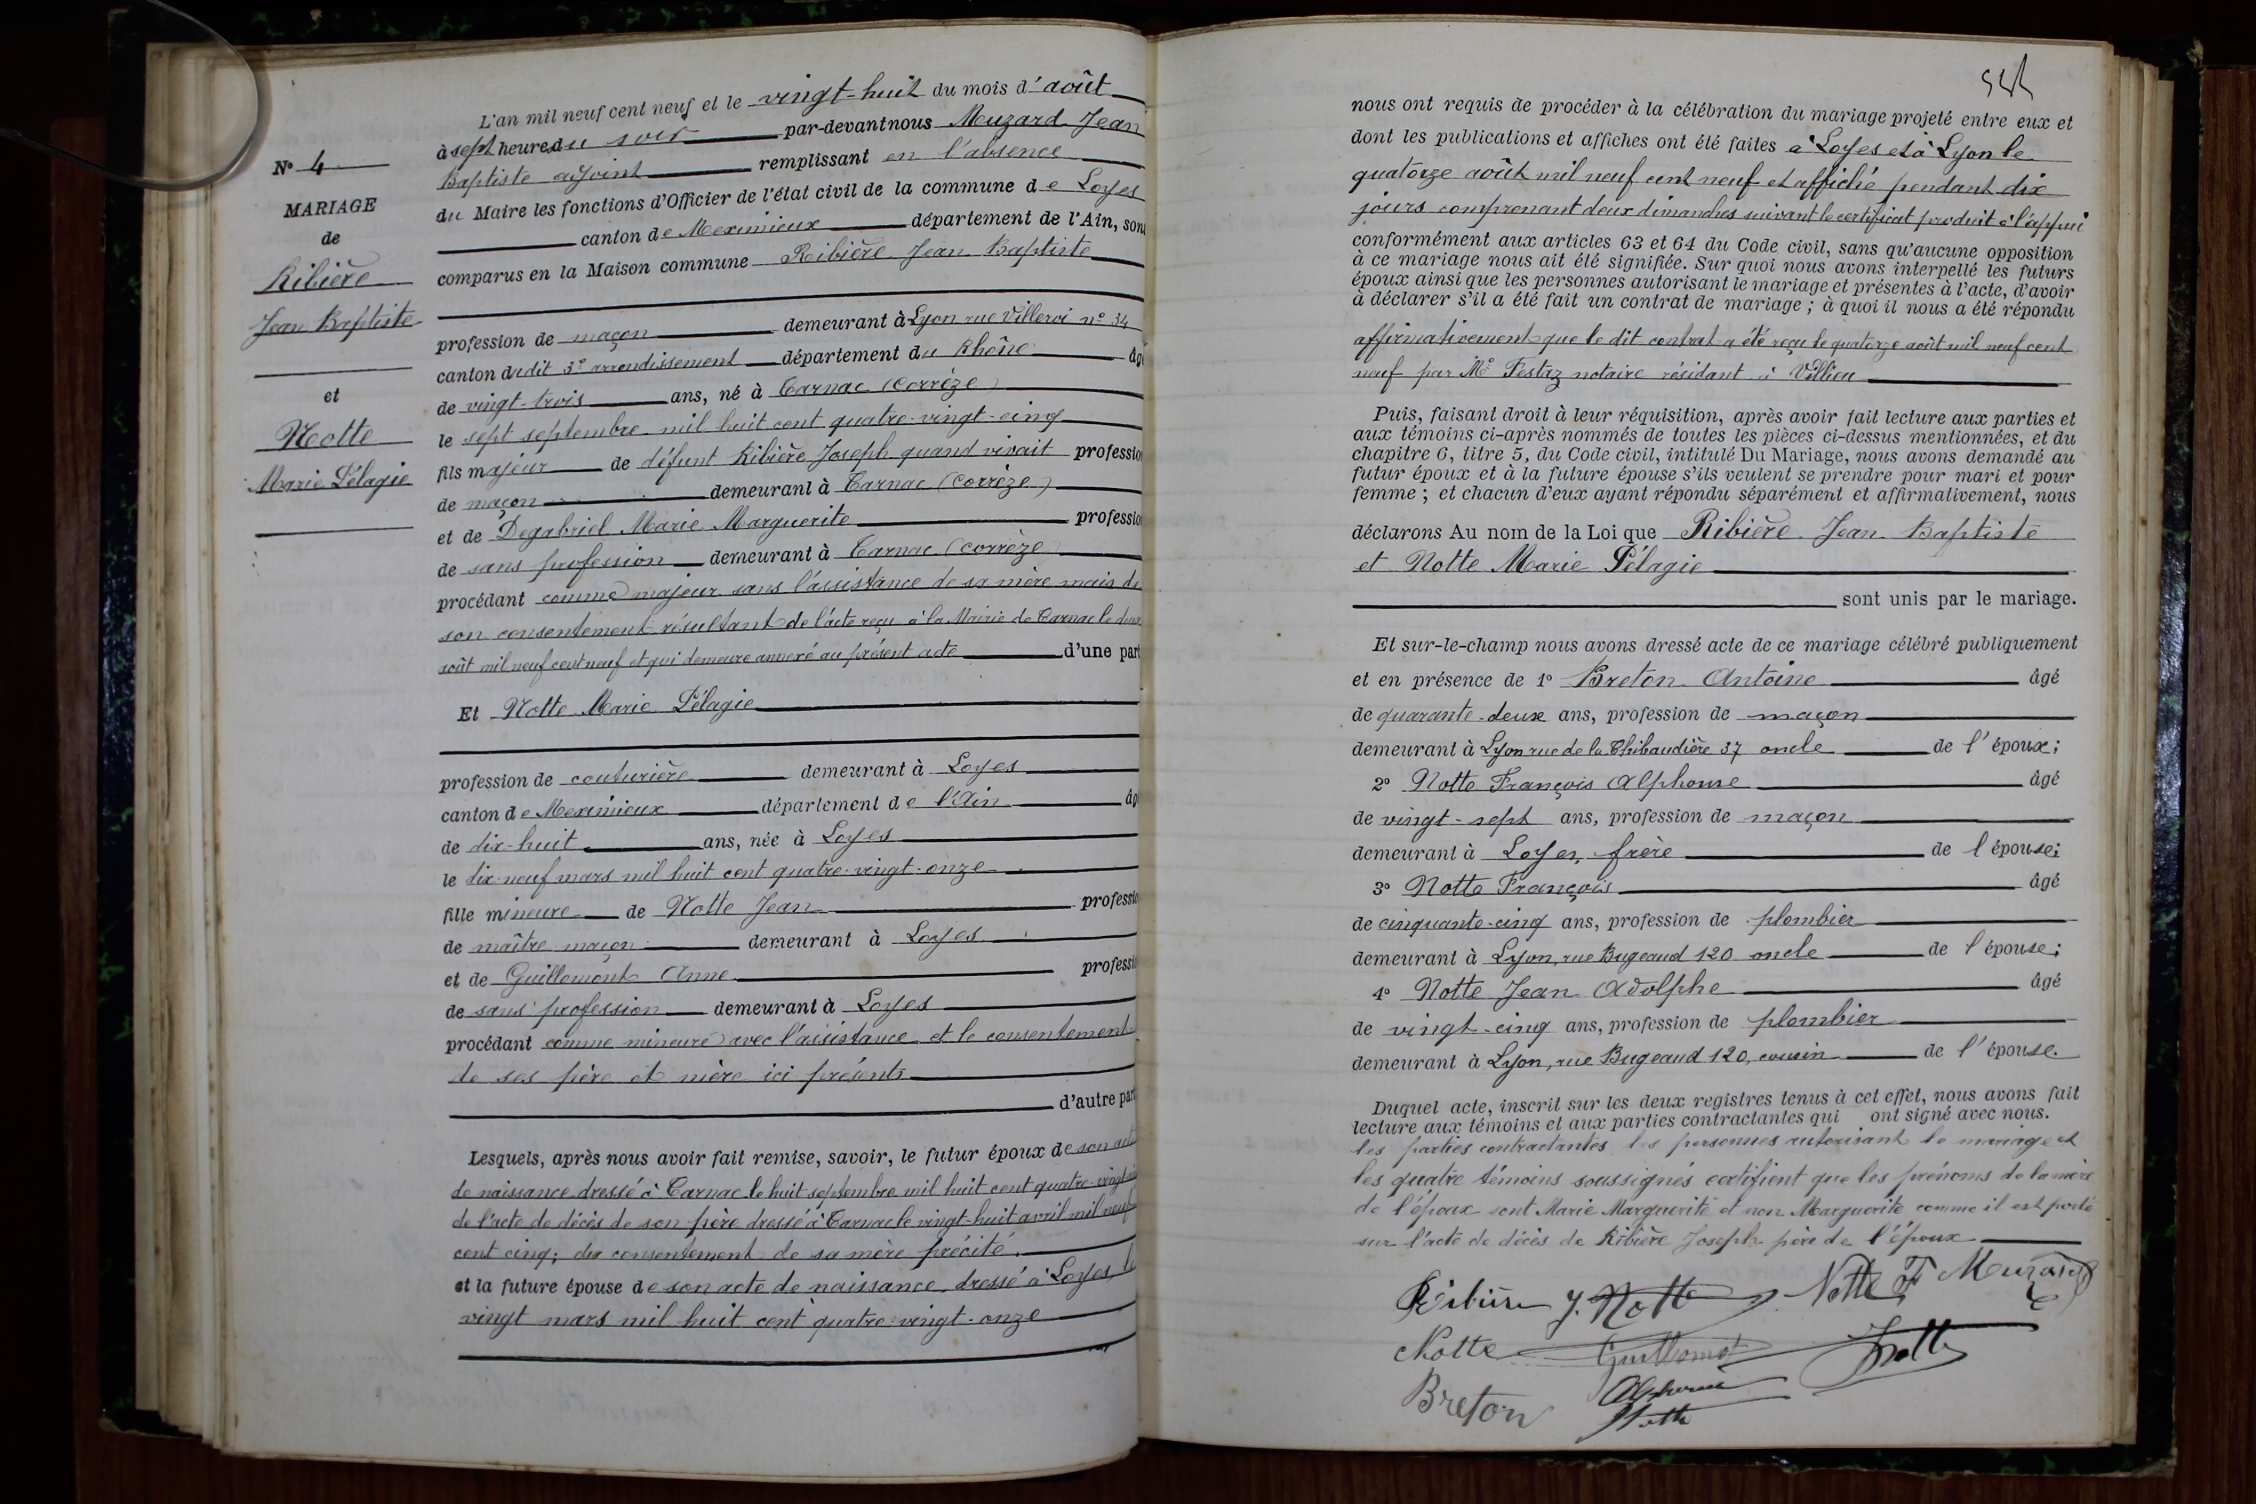 N° 4
MARIAGE
de
Ribière
Jean Baptiste
et
Notte
Marie Pélagie
L'an mil neuf cent neuf et le vingt-huit du mois d'août
à sept heures du soir par-devant nous Muzard Jean
Baptiste adjoint remplissant en l'absence
du Maire les fonctions d'Officier de l'état civil de la commune de Loyes
canton de Meximieux département de l'Ain, sont
comparus en la Maison commune Ribière Jean Baptiste
profession de maçon demeurant à Lyon rue Villeroi n° 34
canton dudit 3e arrondissement département du Rhône âgé
de vingt-trois ans, né à Tarnac (Corrèze)
le sept septembre mil huit cent quatre-vingt-cinq
fils majeur de défunt Ribière Joseph quand vivait profession
de maçon demeurant à Tarnac (Corrèze)
et de Degabriel Marie Marguerite profession
de sans profession demeurant à Tarnac (Corrèze)
procédant comme majeur sans l'assistance de sa mère mais de
son consentement résultant de l'acte reçu à la Mairie de Tarnac le deux
août mil neuf cent neuf et qui demeure annexé au présent acte d'une part
Et Notte Marie Pélagie
profession de couturière demeurant à Loyes
canton de Meximieux département de l'Ain âgé
de dix-huit ans, née à Loyes
le dix-neuf mars mil huit cent quatre-vingt-onze
fille mineure de Notte Jean profession
de maître maçon demeurant à Loyes
et de Guillemont Anne profession
de sans profession demeurant à Loyes
procédant comme mineure avec l'assistance et le consentement
de ses père et mère ici présents
d'autre part
Lesquels, après nous avoir fait remise, savoir, le futur époux de son acte
de naissance dressé à Tarnac le huit septembre mil huit cent quatre-vingt-cinq
de l'acte de décès de son père dressé à Tarnac le vingt-huit avril mil neuf
cent cinq; du consentement de sa mère précité.
et la future épouse de son acte de naissance dressé à Loyes, le
vingt mars mil huit cent quatre-vingt-onze
nous ont requis de procéder à la célébration du mariage projeté entre eux et
dont les publications et affiches ont été faites à Loyes et à Lyon le
quatorze août mil neuf cent neuf et affiché pendant dix
jours comprenant deux dimanches suivant le certificat produit à l'appui
conformément aux articles 63 et 64 du Code civil, sans qu'aucune opposition
à ce mariage nous ait été signifiée. Sur quoi nous avons interpellé les futurs
époux ainsi que les personnes autorisant le mariage et présentes à l'acte, d'avoir
à déclarer s'il a été fait un contrat de mariage ; à quoi il nous a été répondu
affirmativement que le dit contrat a été reçu le quatorze août mil neuf cent
neuf par Me Festaz notaire résidant à Villieu
Puis, faisant droit à leur réquisition, après avoir fait lecture aux parties et
aux témoins ci-après nommés de toutes les pièces ci-dessus mentionnées, et du
chapitre 6, titre 5, du Code civil, intitulé Du Mariage, nous avons demandé au
futur époux et à la future épouse s'ils veulent se prendre pour mari et pour
femme ; et chacun d'eux ayant répondu séparément et affirmativement, nous
déclarons Au nom de la Loi que Ribière Jean Baptiste
et Notte Marie Pélagie
sont unis par le mariage.
Et sur-le-champ nous avons dressé acte de ce mariage célébré publiquement
et en présence de 1° Breton Antoine âgé
de quarante-deux ans, profession de maçon
demeurant à Lyon rue de la Thibaudière 37 oncle de l'époux;
2° Notte François Alphonse âgé
de vingt-sept ans, profession de maçon
demeurant à Loyes, frère de l'épouse;
3° Notte François âgé
de cinquante-cinq ans, profession de plombier
demeurant à Lyon, rue Bugeaud 120 oncle de l'épouse;
4° Notte Jean Adolphe âgé
de vingt-cinq ans, profession de plombier
demeurant à Lyon, rue Bugeaud 120, cousin de l'épouse.
Duquel acte, inscrit sur les deux registres tenus à cet effet, nous avons fait
lecture aux témoins et aux parties contractantes qui ont signé avec nous.
les parties contractantes les personnes autorisant le mariage et
les quatre témoins soussignés certifient que les prénoms de la mère
de l'époux sont Marie Marguerite et non Marguerite comme il est porté
sur l'acte de décès de Ribière Joseph père de l'époux
Ribière J. Notte Notte F Muzard
Notte Guillemot Notte
Breton Alphonse
Notte